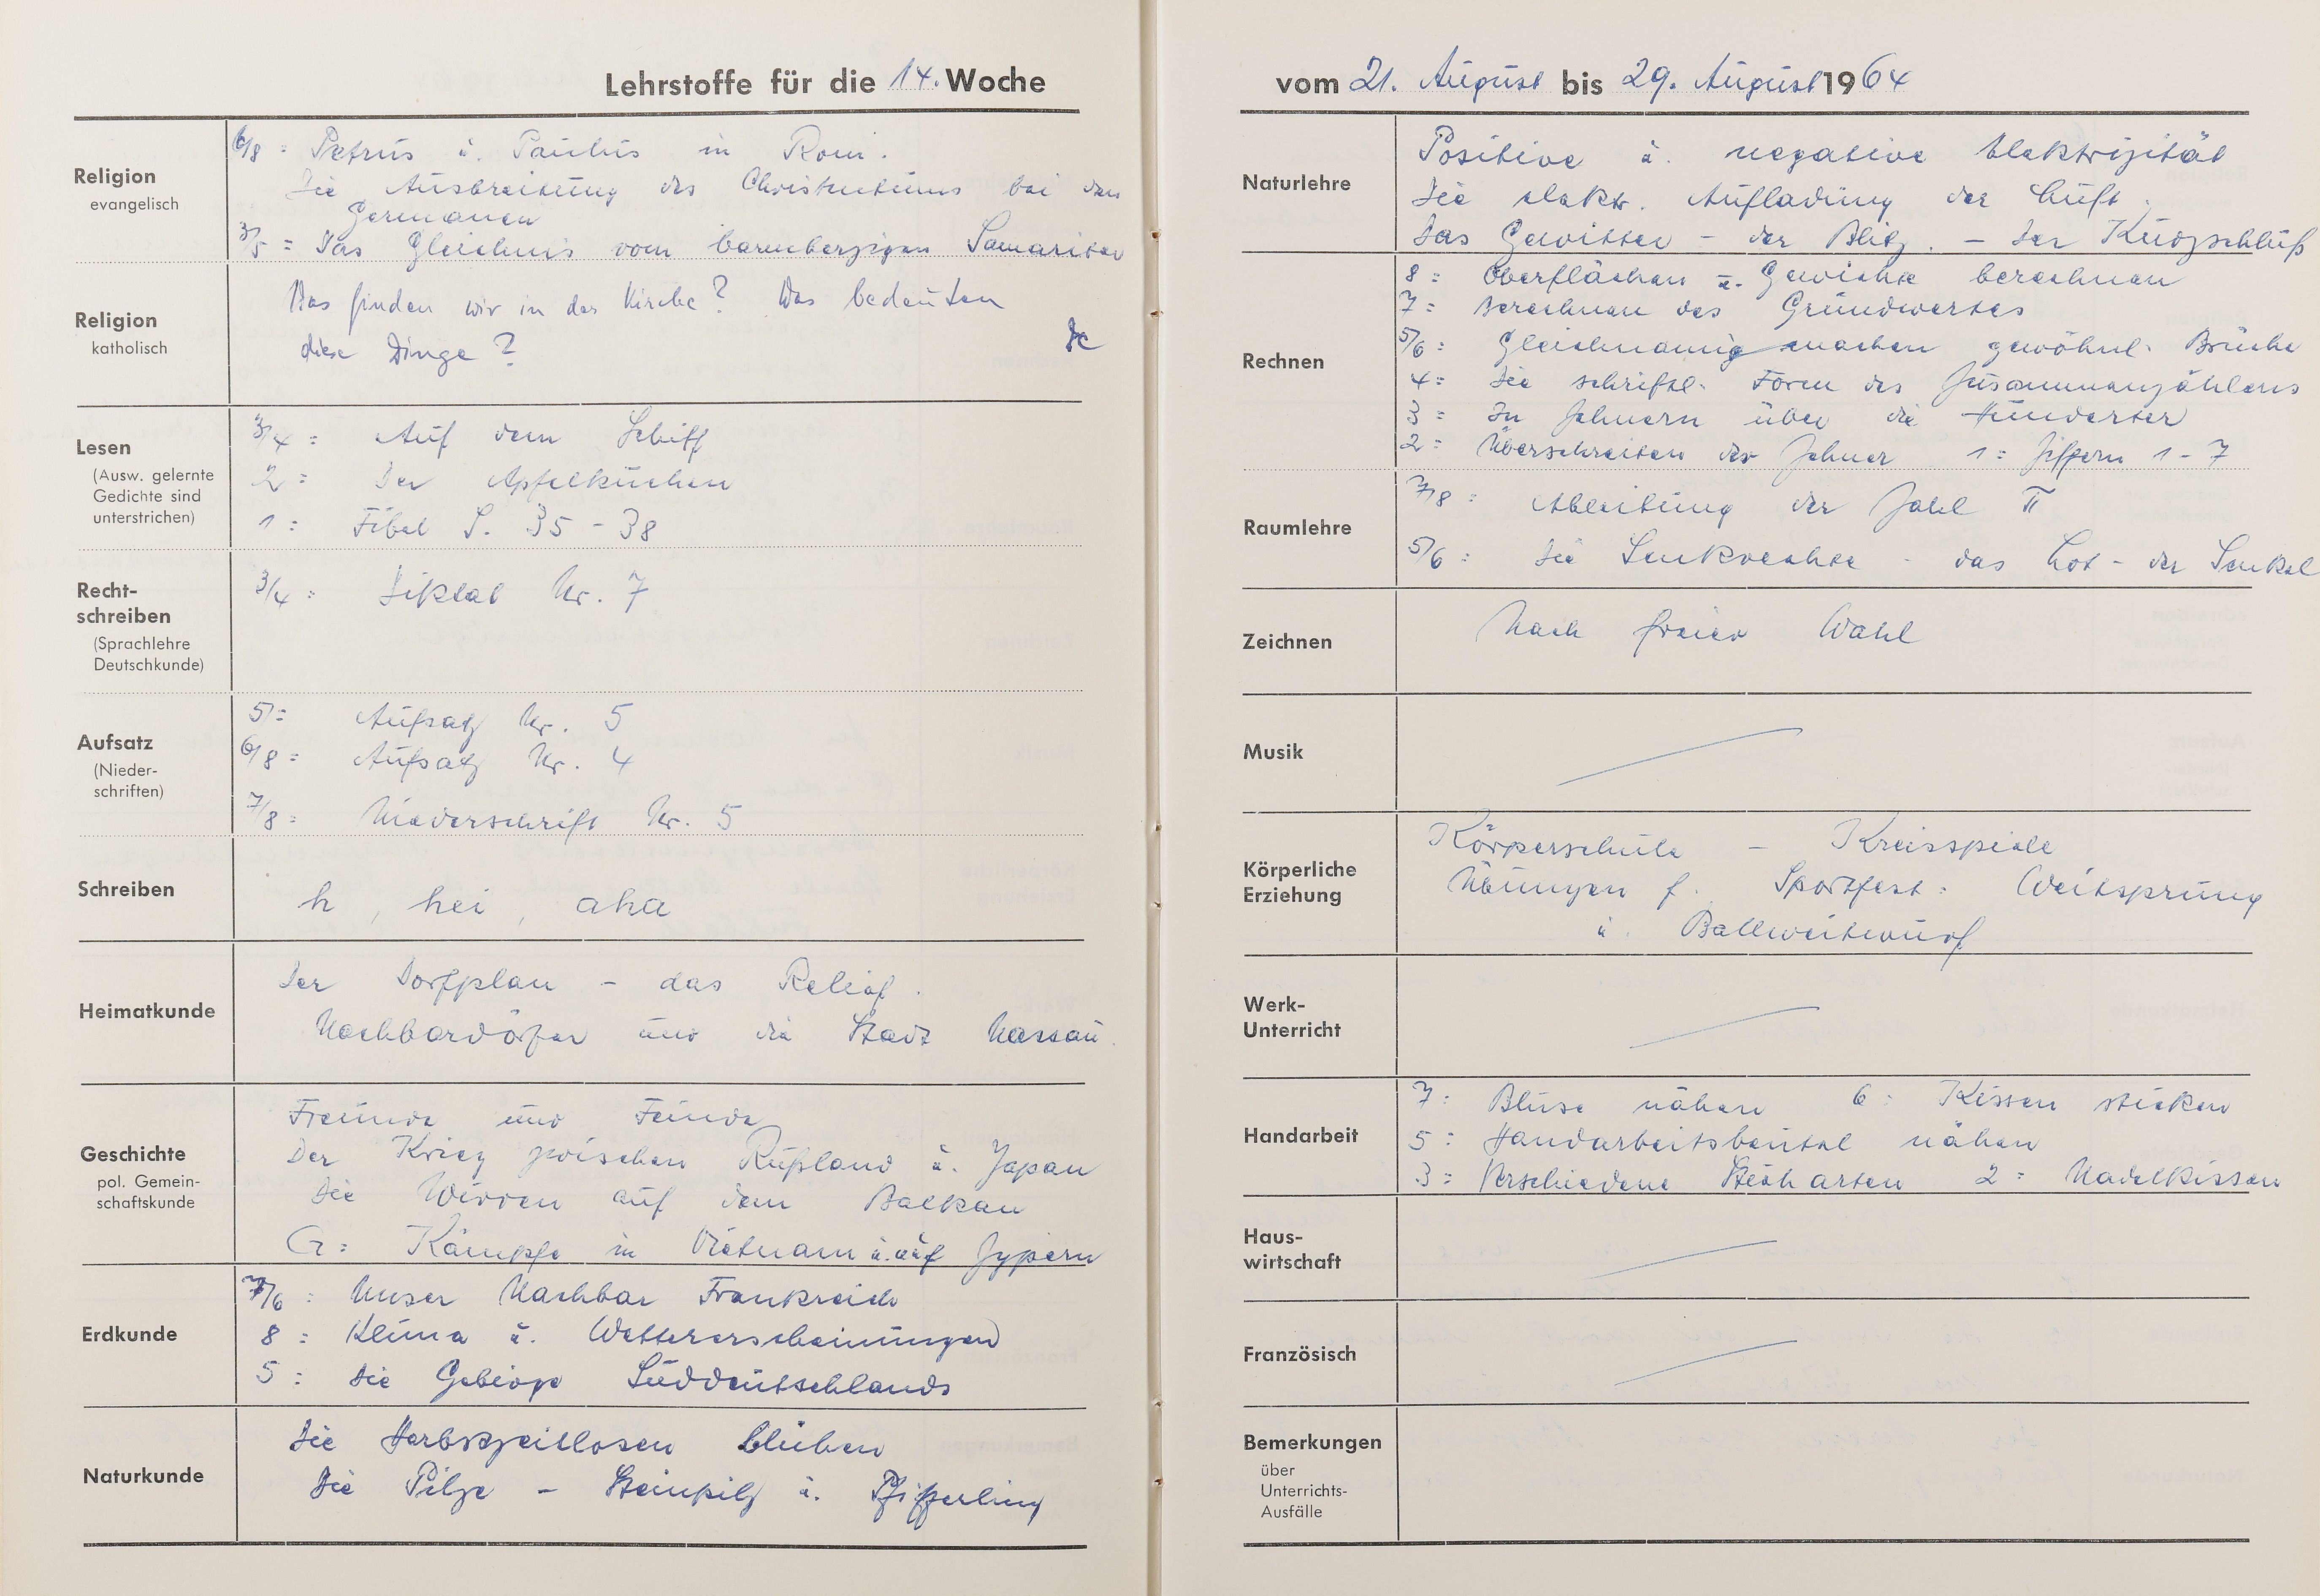 Lehrstoffe für die 14. Woche
Religion
evangelisch
6/8 = Petrus u. Paulus in Rom.
Die Ausbreitung des Christentums bei den
Germanen
3/5 = Das Gleichnis vom barmherzigen Samariter
Religion
katholisch
Was finden wir in der Kirche? Was bedeuten
diese Dinge?
Lesen
(Ausw. gelernte
Gedichte sind
unterstrichen)
3/4 = Auf dem Schiff
2 = Der Apfelkuchen
1 = Fibel S. 35 - 38
Recht-
schreiben
(Sprachlehre
Deutschkunde)
3/4 = Diktat Nr. 7
Aufsatz
(Nieder-
schriften)
5 = Aufsatz Nr. 5
6/8 = Aufsatz Nr. 4
7/8 = Niederschrift Nr. 5
Schreiben
h, hei, aha
Heimatkunde
Der Dorfplan - das Relief.
Nachbardörfer und die Stadt Nassau.
Geschichte
pol. Gemein-
schaftskunde
Freunde und Feinde
Der Krieg zwischen Rußland u. Japan
Die Wirren auf dem Balkan
G = Kämpfe in Vietnam u. auf Zypern
Erdkunde
7/6 = Unser Nachbar Frankreich
8 = Klima u. Wettererscheinungen
5 = Die Gebirge Süddeutschlands
Naturkunde
Die Herbstzeitlosen blühen
Die Pilze - Steinpilz u. Pfifferling
vom 21. August bis 29. August 1964
Naturlehre
Positive u. negative Elektrizität
Die elektr. Aufladung der Luft.
Das Gewitter - der Blitz. - Der Kurzschluß
Rechnen
8 = Oberflächen u. Gewichte berechnen
7 = Berechnen des Grundwertes
5/6 = Gleichnamigmachen gewöhnl. Brüche
4 = Die schriftl. Form des Zusammenzählens
3 = In Zehnern über die Hunderter
2 = Überschreiten der Zehner 1 = Ziffern 1 - 7
Raumlehre
7/8 = Ableitung der Zahl π
5/6 = Die Senkrechte - das Lot - der Senkel
Zeichnen
Nach freier Wahl
Musik
Körperliche
Erziehung
Körperschule - Kreisspiele
Übungen f. Sportfest: Weitsprung
u. Ballweitwurf
Werk-
Unterricht
Handarbeit
7: Bluse nähen 6: Kissen sticken
5: Handarbeitsbeutel nähen
3 = Verschiedene Stich arten 2 = Nadelkissen
Haus-
wirtschaft
Französisch
Bemerkungen
über
Unterrichts-
Ausfälle